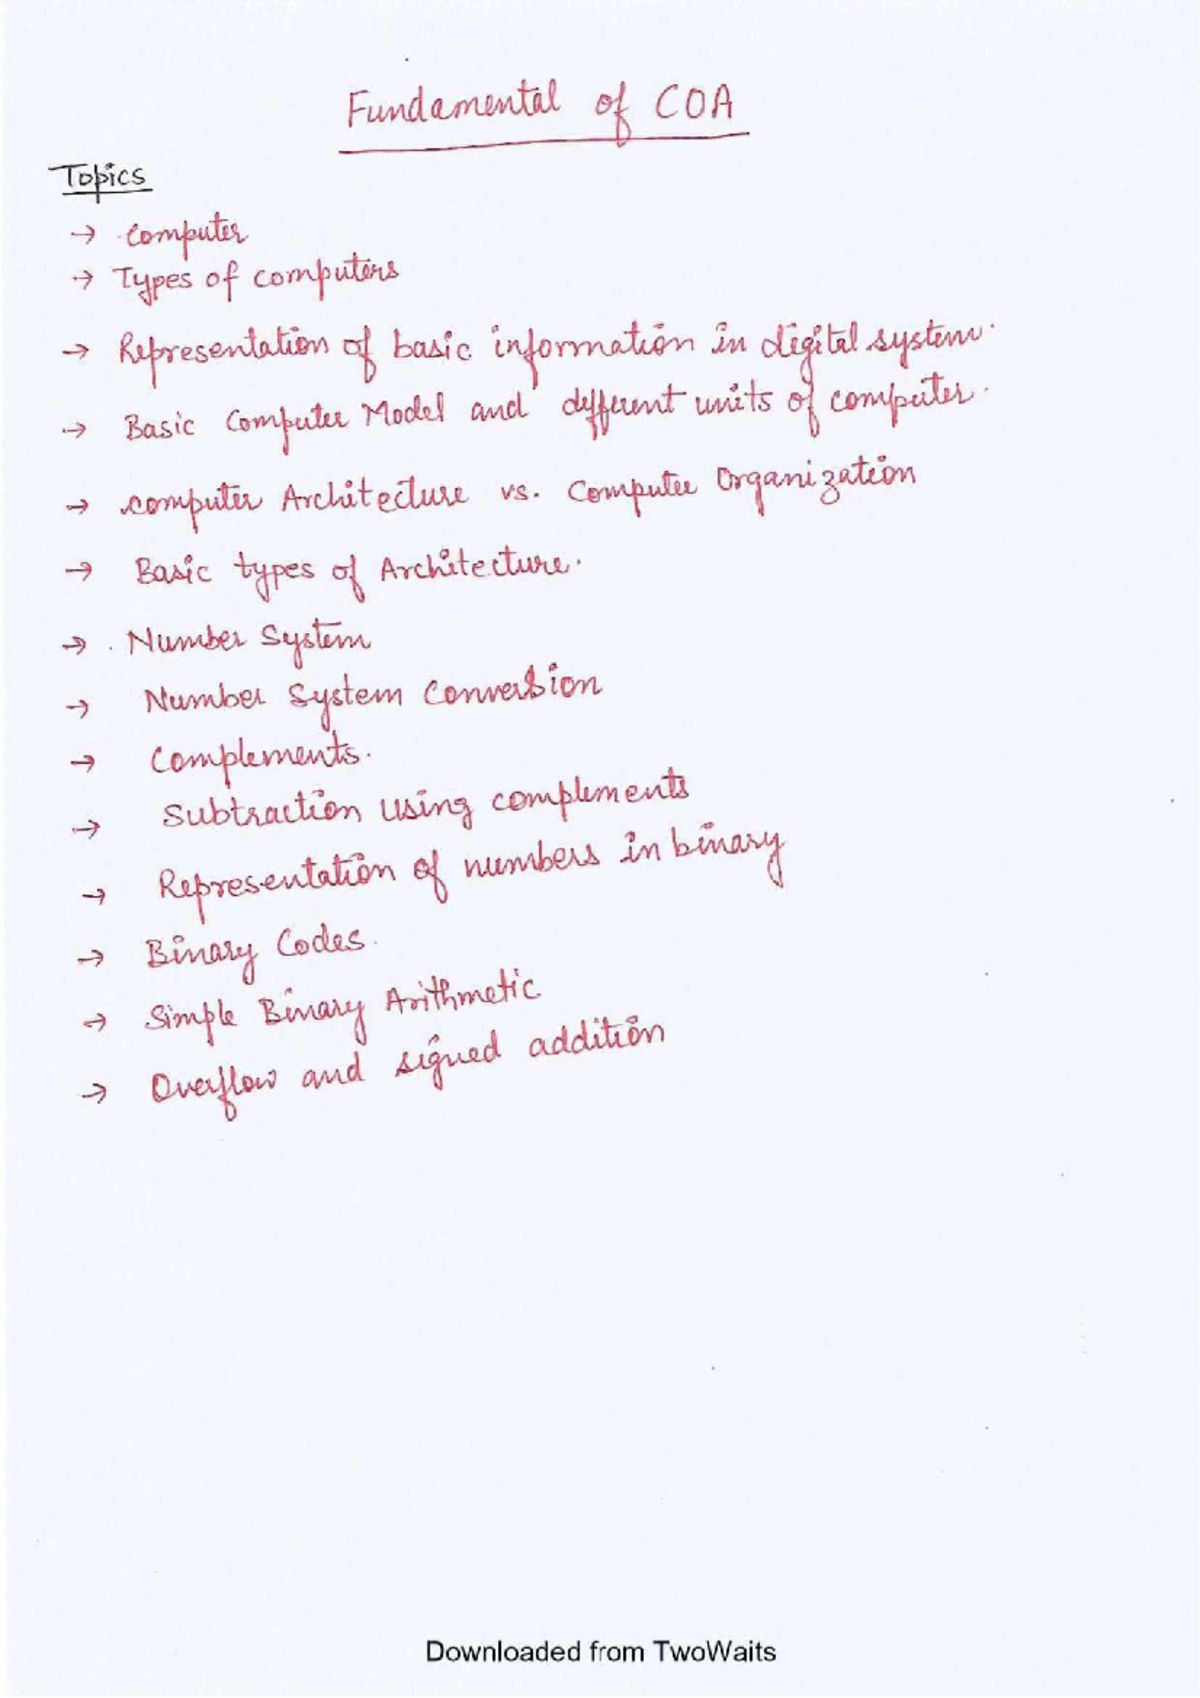 Fundamental of COA
Topics
→ Computer
→ Types of computers
→ Representation of basic information in digital system.
→ Basic Computer Model and different units of computer.
→ computer Architecture vs. Computer Organization
→ Basic types of Architecture.
→ Number System
→ Number System Conversion
→ Complements.
→ Subtraction using complements
→ Representation of numbers in binary
→ Binary Codes.
→ Simple Binary Arithmetic
→ Overflow and signed addition
Downloaded from TwoWaits